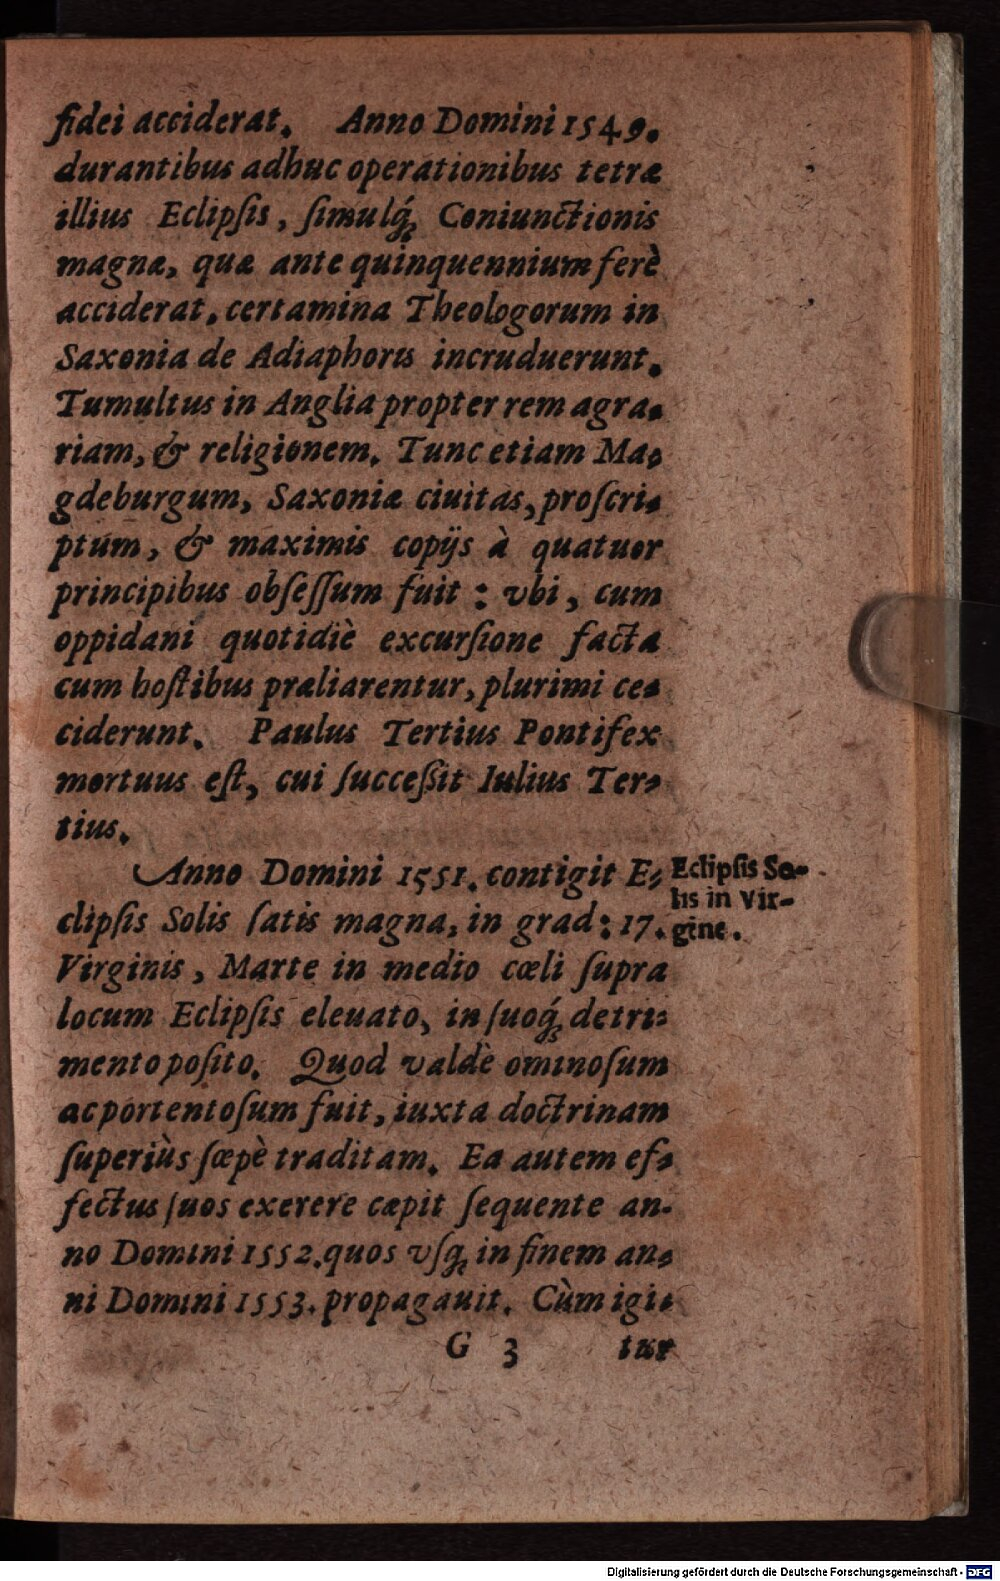 fidei acciderat. Anno Domini 1549.
durantibus adhuc operationibus tetræ
illius Eclipſis, ſimulq́; Coniunctionis
magnæ, quæ ante quinquennium ferè
acciderat, certamina Theologorum in
Saxonia de Adiaphoris incruduerunt.
Tumultus in Anglia propter rem agra-
riam, & religionem. Tunc etiam Ma-
gdeburgum, Saxoniæ ciuitas, proſcri-
ptum, & maximis copijs à quatuor
principibus obſeſſum fuit: vbi, cum
oppidani quotidiè excurſione facta
cum hoſtibus præliarentur, plurimi ce-
ciderunt. Paulus Tertius Pontifex
mortuus eſt, cui ſucceſſit Iulius Ter-
tius.
Anno Domini 1551. contigit E-
clipſis Solis ſatis magna, in grad: 17.
Virginis, Marte in medio cœli ſupra
locum Eclipſis eleuato, in ſuoq́; detri-
mento poſito. Quod valdè ominoſum
ac portentoſum fuit, iuxta doctrinam
ſuperiùs ſæpè traditam. Ea autem ef-
fectus ſuos exerere cæpit ſequente an-
no Domini 1552. quos vſq; in finem an-
ni Domini 1553. propagauit. Cùm igi-
G 3 tur
Eclipſis So-
lis in Vir-
gine.
Digitalisierung gefördert durch die Deutsche Forschungsgemeinschaft - DFG